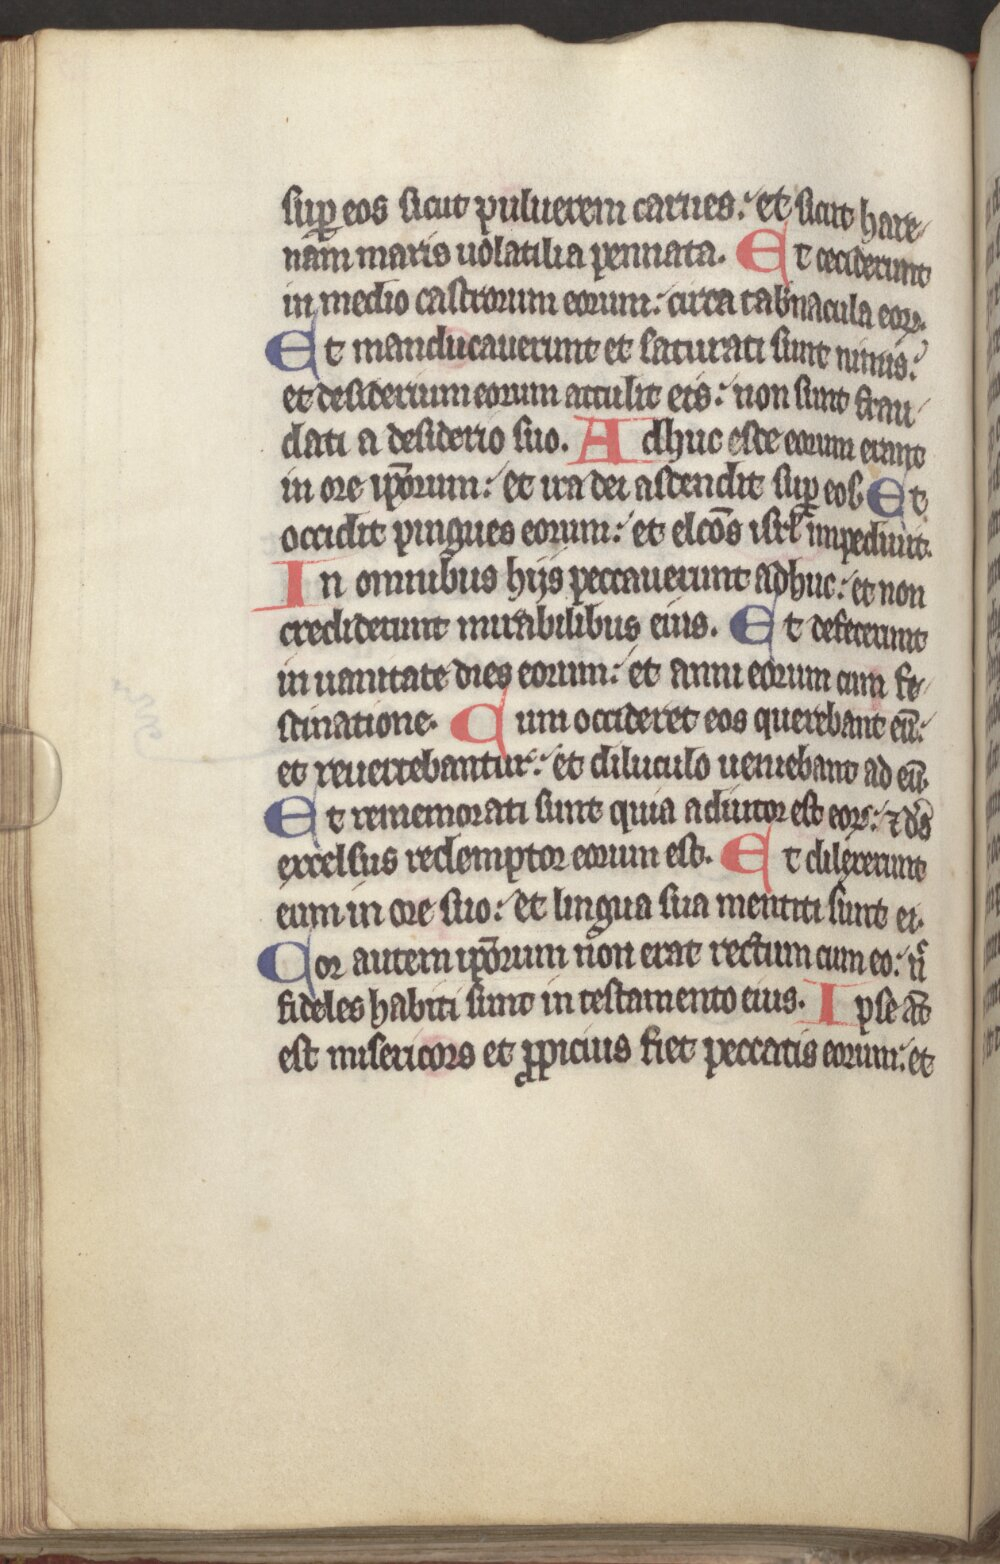 sup̲ eos sicut puluerem carnes: et sicut hare/
nam maris uolatilia pennata. Et ceciderunt
in medio castrorum eorum: circa tab̄nacula eoꝝ.
Et manducauerunt et saturati sunt nimis:
et desiderium eorum attulit eis: non sunt frau/
dati a desiderio suo. Adhuc esce eorum erant
in ore ip̄orum: et ira dei ascendit suꝑ eos Et
occidit pingues eorum: et elc̄os isrł impediuit.
In omnibus hijs peccauerunt adhuc: et non
crediderunt mirabilibus eius. Et defecerunt
in uanitate dies eorum: et anni eorum cum fe/
stinatione. Cum occideret eos querebant eū:
et reuertebantur: et diluculo ueniebant ad eū.
Et rememorati sunt quia adiutor est eoꝝ: ⁊ dс̄
excelsus redemptor eorum est. Et dilexerunt
eum in ore suo: et lingua sua mentiti sunt ei.
Cor autem ip̄orum non erat rectum cum eo: n̄
fideles habiti sunt in testamento eius. Ipse aт̄
est misericors et ꝓpicius fiet peccatis eorum: et